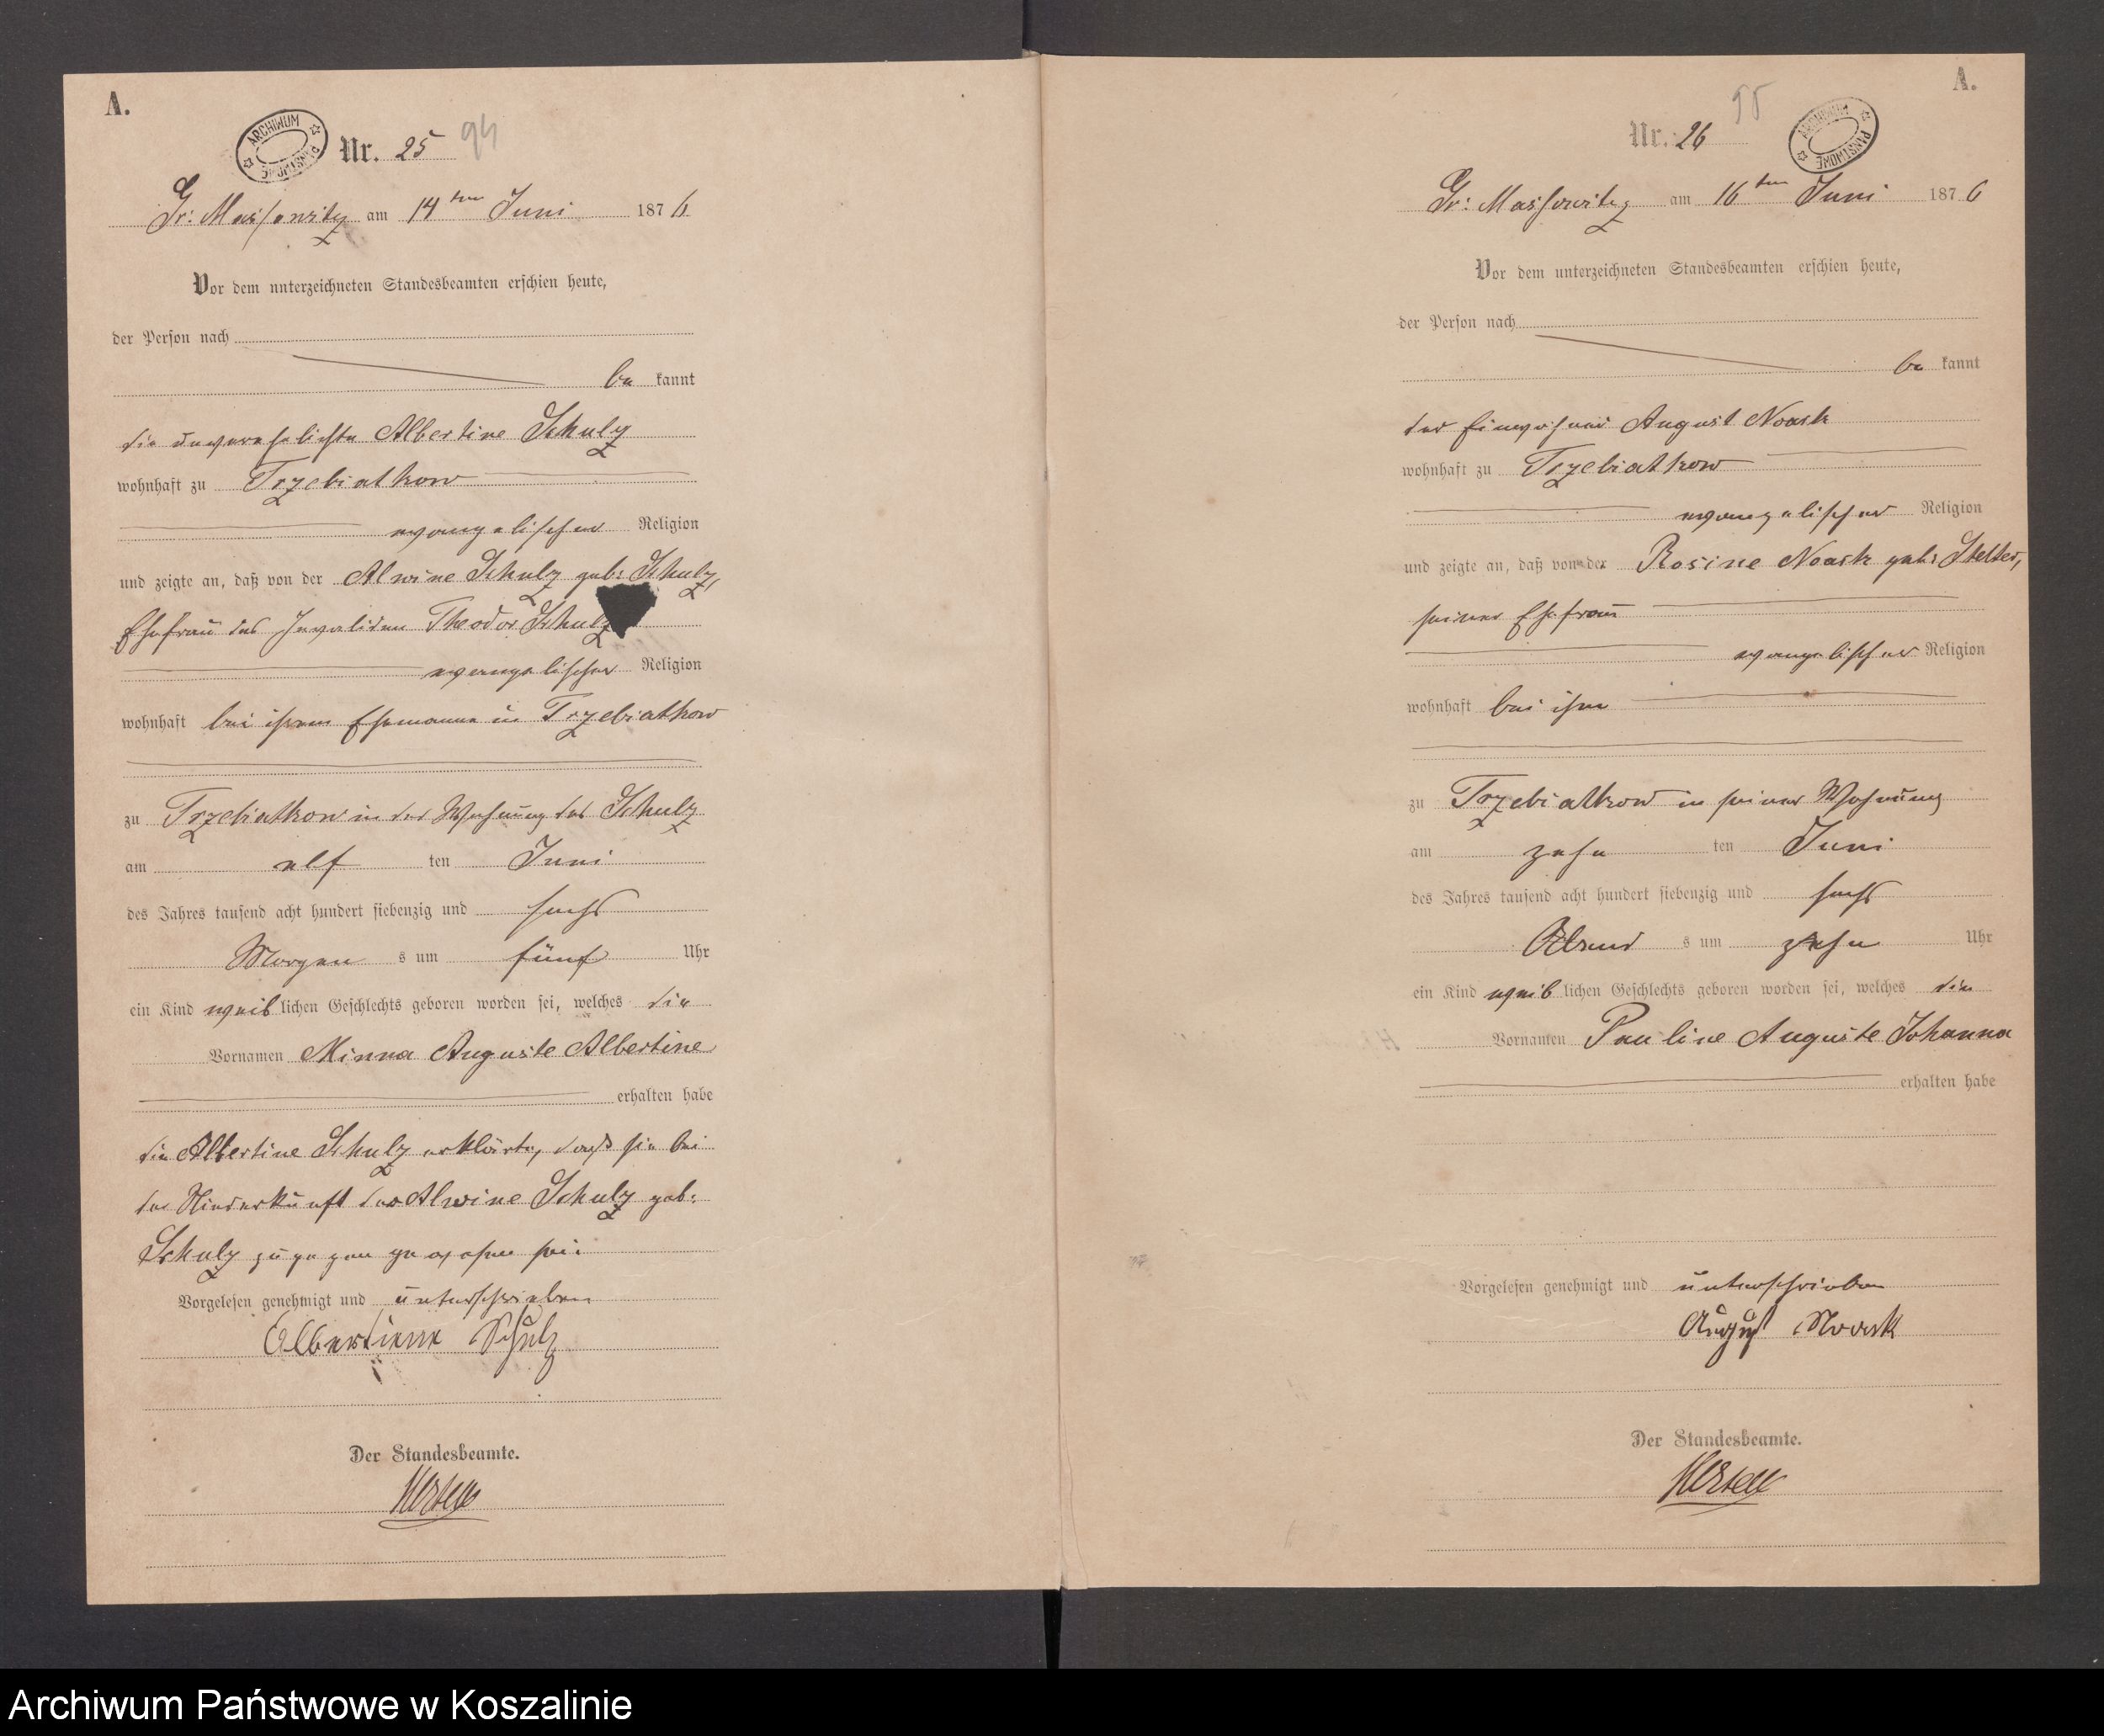 A.
ARCHIWUM PAŃSTWOWE
Nr. 25 94
Gr: Massowitz am 14ten Juni 1876
Vor dem unterzeichneten Standesbeamten erschien heute,
der Person nach
be kannt
die unverehelichte Albertine Schulz
wohnhaft zu Trzebiatkow
evangelischer Religion
und zeigte an, daß von der Alwine Schulz geb: Schulz,
Ehefrau des Invaliden Theodor Schulz
evangelischer Religion
wohnhaft bei ihrem Ehemanne in Trzebiatkow
zu Trzebiatkow in der Wohnung des Schulz
am elf ten Juni
des Jahres tausend acht hundert siebenzig und sechs
Morgen s um fünf Uhr
ein Kind weib lichen Geschlechts geboren worden sei, welches die
Vornamen Minna Auguste Albertine
erhalten habe
die Albertine Schulz erklärte, daß sie bei
der Niederkunft der Alwine Schulz geb:
Schulz zugegen gewesen sei.
Vorgelesen genehmigt und unterschrieben
Albertiene Schulz
Der Standesbeamte.
A.
55
ARCHIWUM PAŃSTWOWE
Nr. 26
Gr: Massowitz am 16ten Juni 1876
Vor dem unterzeichneten Standesbeamten erschien heute,
der Person nach
be kannt
der Einwohner August Noask
wohnhaft zu Trzebiatkow
evangelischer Religion
und zeigte an, daß von der Rosine Noask geb: Stelter,
seiner Ehefrau
evangelischer Religion
wohnhaft bei ihm
zu Trzebiatkow in seiner Wohnung
am zehn ten Juni
des Jahres tausend acht hundert siebenzig und sechs
Abend s um zehn Uhr
ein Kind weib lichen Geschlechts geboren worden sei, welches die
Vornamen Pauline Auguste Johanna
erhalten habe
Vorgelesen genehmigt und unterschrieben
August Noask
Der Standesbeamte.
Archiwum Państwowe w Koszalinie